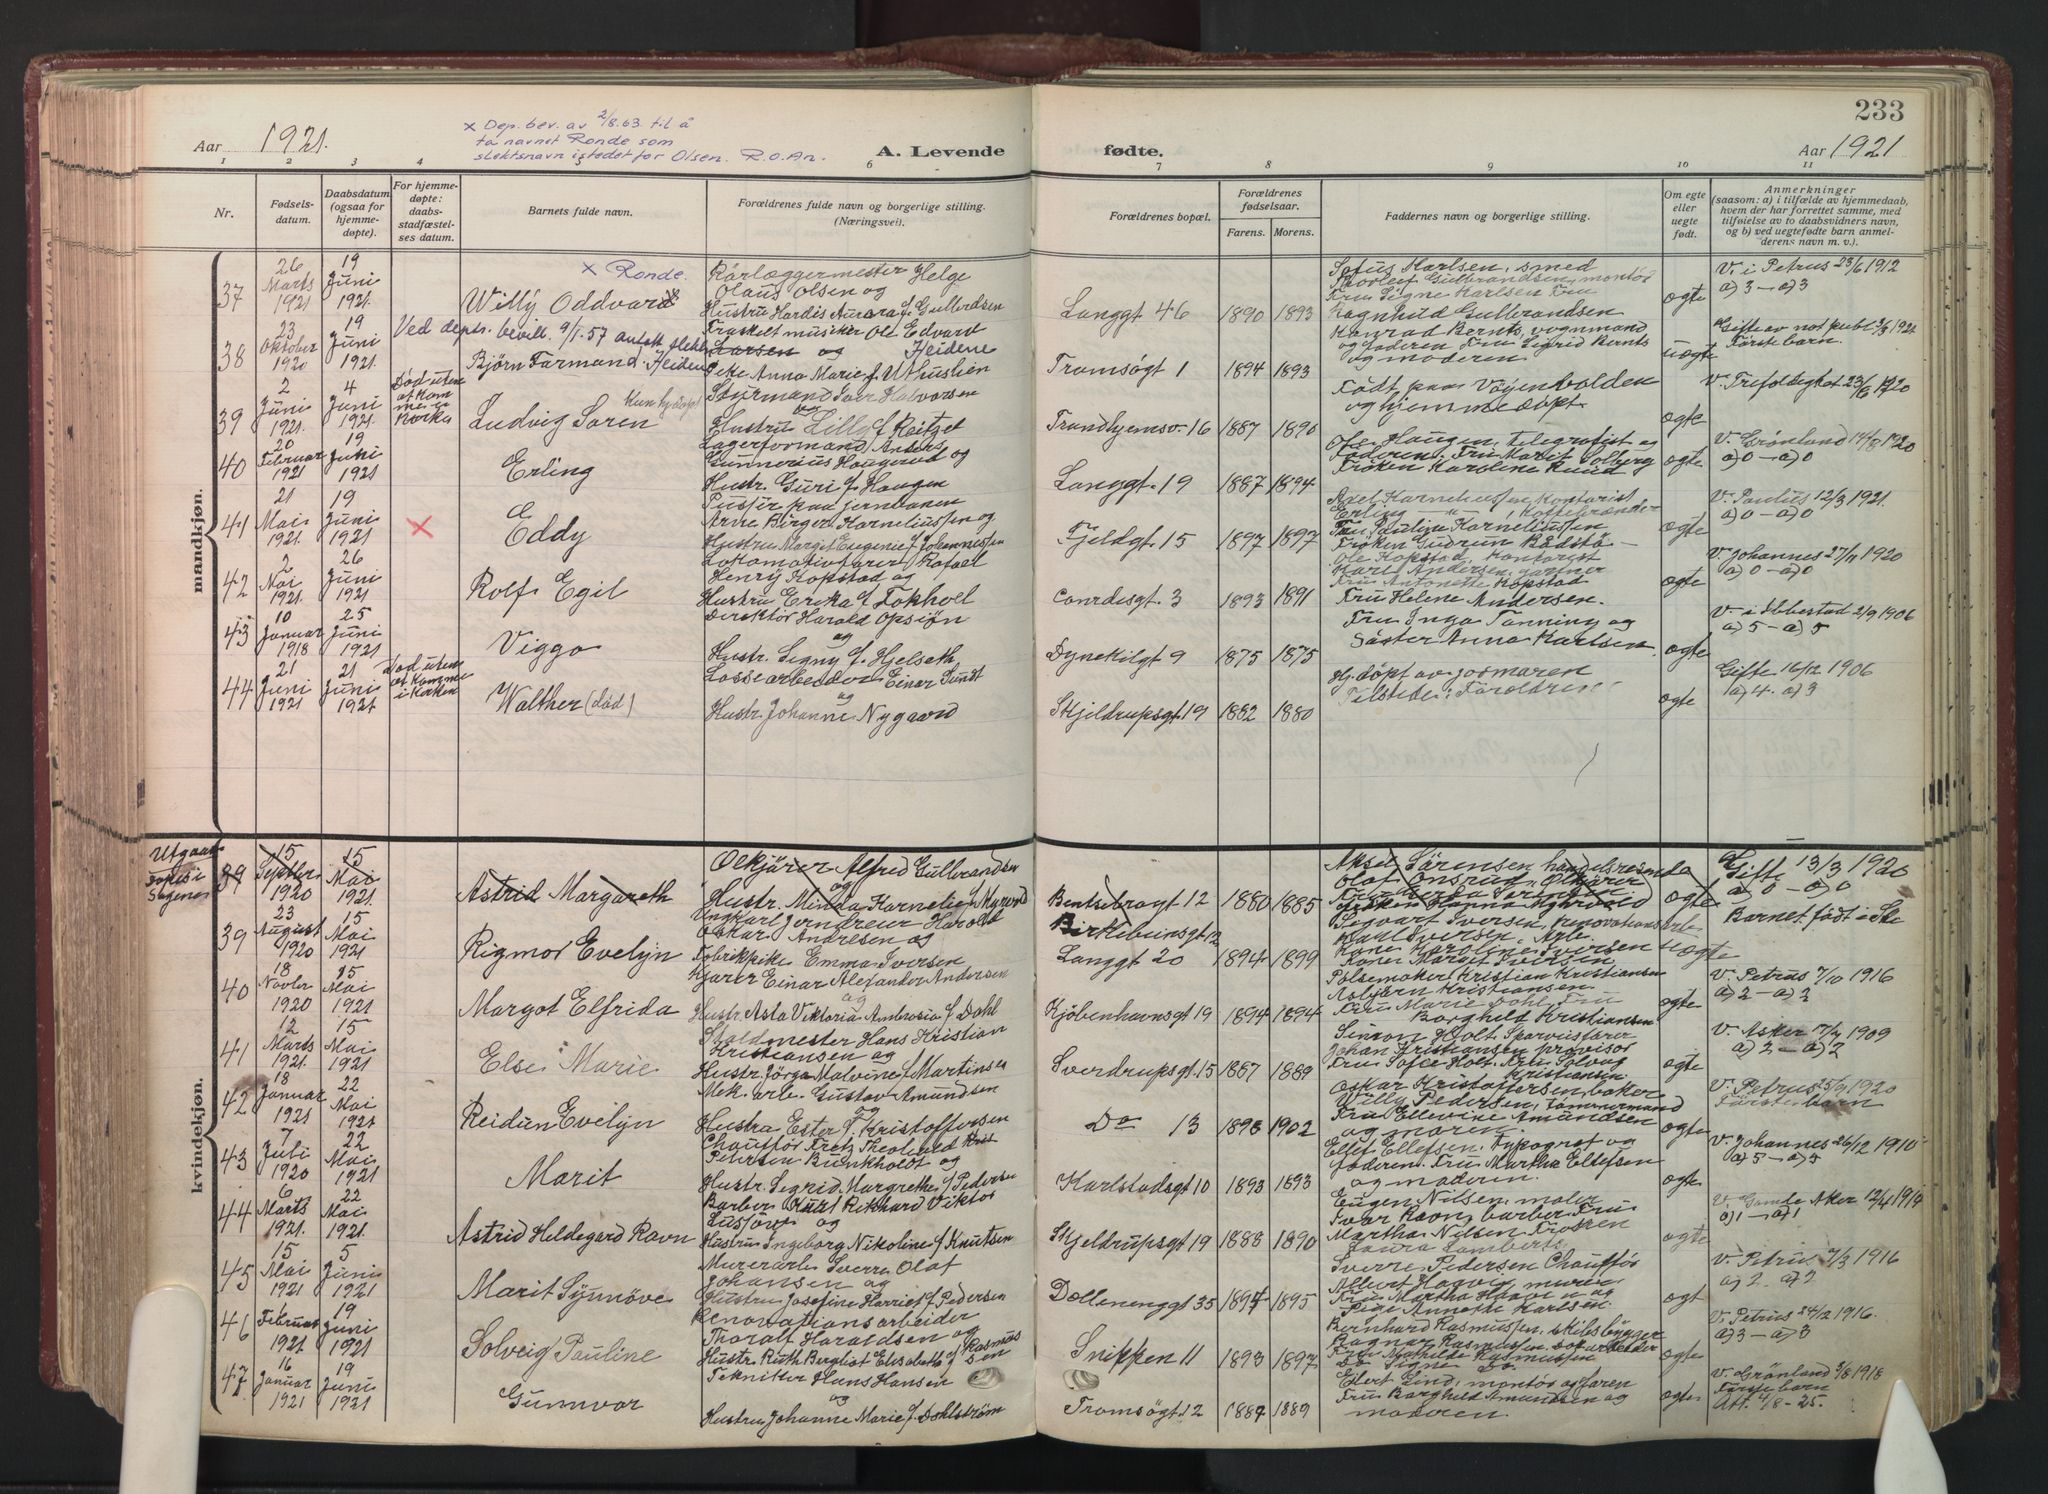 233
Aar 1921.
x Dep. bev. av 2/8.63. til å
ta navnet Ronde som
slektsnavn istedet for Olsen. R.O.An.
A. Levende
fødte.
Aar 1921
1 2 3 4 5 6 7 8 9 10 11
Nr.
Fødsels-
datum.
Daabsdatum
(ogsaa for
hjemme-
døpte).
For hjemme-
døpte:
daabs-
stadfæstel-
ses datum.
Barnets fulde navn.
Forældrenes fulde navn og borgerlige stilling.
(Næringsvei).
Forældrenes bopæl.
Forældrenes
fødselsaar.
Farens. Morens.
Faddernes navn og borgerlige stilling.
Om egte
eller
uegte
født.
Anmerkninger
(saasom: a) i tilfælde av hjemmedaab,
hvem der har forrettet samme, med
tilføielse av to daabsvidners navn,
og b) ved uegtefødte barn anmel-
derens navn m. v.).
mandkjøn.
37
26
Marts
1921
19
Juni
1921.
x Ronde.
Willy Oddvard x
Rörlæggermester Helge
Olaus Olsen og
Hustru Hardis Aurora f. Gulbrandsen
Langgt 46
1890 1893
Sofus Karlsen, smed
Gulbrandsen, montör
Fru Signe Karlsen Fru
Ragnhild Gulbrandsen
ægte
V. i Petrus 23/6 1912
a) 3 – a) 3
38
23
Oktober
1920
19
Juni
1921.
Ved deps. bevill. 9/1.57 antatt slekt
Björn Farmand. Heidene
Fraskilt musiker Ole Edvard
Larsen og Heidene
Pike Anna Marie f. Uthuslien
Tromsögt 1
1894 1893
Konrad Bernts, vognmand
og faderen Fru Sigrid Bernts
og moderen
uægte
Gifte av not. publ. 3/3 1921
Förste barn.
39
2
Juni
1921.
4
Juni
1921.
Död uten
at kom-
me i
kirke
Ludvig Soren
kun hj.döpt
Styrmand Iver Halvorsen
og
Hustru Lilly f. Reitzet
Trondhjemsv. 16
1887 1890
Födt paa Vöyenvolden
og hjemmedöpt.
ægte
V. Trefoldighet 23/6 1920
40
20
Februar
1921
19
Juni
1921.
Erling
Lagerformand Anders
Gunnerius Haugerud og
Hustr. Guri f. Haugen
Langgt. 19
1887 1894
Ole Haugen, telegrafist og
Faderen, Fru Marit Solberg
Fröken Karoline Ruud
ægte
V. Grønland 14/8 1920
a) 0 – a) 0
41
21
Mai
1921.
19
Juni
1921
Eddy
Pusser paa jernbanen
Arne Birger Korneliussen og
Hustru Margit Eugenie f. Johannessen
Fjeldgt. 15
1897 1897
Axel Korneliussen, kontorist
Erling —"—, Kaffebrænder
Fru Pauline Korneliussen
Fröken Gudrun Bådstö –
ægte
V. Paulus 12/3 1921.
a) 0 – a) 0
42
2
Mai
1921.
26
Juni
1921
Rolf Egil
Lokomotivfører Rafael
Henry Kopstad og
Hustru Erika f. Fokhol
Conradisgt. 3
1893 1891
Ole Kopstad, kontorist
Karl Andersen, gartner
Fru Antonette Kopstad
Fru Helene Andersen.
ægte
V. Johannes 27/11 1920
a) 0 – a) 0
43
10
Januar
1918
25
Juni
1921
Viggo
Direktör Harold Opsiön
og
Hustr. Signy f. Hjelseth
Dynekilgt 9
1875 1875
Fru Inga Tanning og
Söster Anna Karlsen.
ægte
V. i Ibbestad 2/9 1906
a) 5 – a) 5
44
21
Juni
1921
21
Juni
1921
Död uten
at komme
i kirken
Walther (död)
Lossearbeider Einar Sundt
og
Hustr. Johanne Nygaard
Skjeldrupsgt. 19
1882 1880
Hj. döpt av jormaren
Tilstede: Foreldrene
ægte
Gifte 16/12 1906
a) 4. a) 3
kvindekjøn.
Utgaar
döpt i
Sagene
39
15
Septber
1920
15
Mai
1921.
Astrid Margareth
Ölkjörer Alfred Gulbrandsen
og
Hustr. Minda Kornelie f. Myrvold
Bentsebrogt 12
1880 1885
Aksel Sörensen, handelsreisende
Olaf Onsrud, Ölkjörer
ægte
Gifte 13/3 1920
a) 0 – a) 0
39
23
August
1920
15
Mai
1921
Rigmor Evelyn
Ungkarl Jerndreier Harald
Oskar Andresen og
Fabrikpike Emma Iversen
Birkebeinsgt 12
Langgt 20
1894 1899
Sigvart Iversen, renovationsarb.
Karl Iversen, Arb.
Kone Karoline Iversen
Kone Margit Iversen
uægte
Barnet födt i Ske
40
18
Novber
1920
15
Mai
1921.
Margot Elfrida
Kjører Einar Alexander Andersen
og
Hustr. Asta Viktoria Ambrosia f. Dahl
Kjöbenhavnsgt 19
1894 1894
Pölsemaker Kristian Kristiansen
Asbjörn Kristiansen
Fru Marie Dahl, Fru
Borghild Kristiansen
ægte
V. Petrus 7/10 1916
a) 2 – a) 2
41
12
Marts
1921.
15
Mai
1921
Else Marie
Staldmester Hans Kristian
Kristiansen og
Hustr. Jörga Malvine f. Martinsen
Sverdrupsgt. 15
1887 1889
Simon Holt, Sporveisfører
Johan Kristiansen provisor
Fru Sofie Holt, Fru Solveig
Kristiansen
ægte
V. Asker 7/7 1909
a) 2 – a) 2
42
18
Januar
1921
22
Mai
1921
Reidun Evelyn
Mek. arb. Gustav Amundsen
og
Hustru Ester f. Kristoffersen
Do 13
1898 1902
Oskar Kristoffersen, baker
Willy Pedersen, tömmermand
Fru Ellevine Amundsen
og moren
ægte
V. Petrus 25/9 1920
Förste barn
43
7
Juli
1920
22
Mai
1921
Marit
Chauffför Fritz Theobald Krist
Petersen Bunkholdt og
Hustr. Sigrid Margrethe f. Pedersen
Karlstadsgt 10
1893 1893
Ellef Ellefsen, Typograf og
faderen. Fru Martha Ellefsen
og moderen.
ægte
V. Johannes 26/12 1910
a) 5 – a) 5
44
6
Marts
1921.
22
Mai
1921.
Astrid Heldegard Ravn
Barber Karl Rikhard Viktor
og
Hustru Ingeborg Nikoline f. Knutsen
Skjeldrupsgt 19
1888 1890
Eugen Nilsen, maler
Ivar Ravn, barber Fru
Martha Nilsen Fröken
Laura Lamberts
ægte
V. Gamle Aker 12/4 1914
a) 1 – a) 1
45
15
Mai
1921
5
Juni
1921
Marit Synnöve
Murerarb. Sverre Olaf
Johansen og
Hustru Josefine Harriet f. Pedersen
Dællenenggt 35
1894 1895
Sverre Pedersen Chauffför
Albert Haave, murer
Fru Martha Haave og
Pike Annette Karlsen.
ægt
V. Petrus 7/3 1916
a) 2 a) 2
46
Februar
1921
19
Juni
1921
Solveig Pauline
Renovationsarbeider
Thoralf Haraldsen og
Hustr. Ruth Bergliot Elisabeth f. Rasmus
sen
Snippen 11
1893 1897
Bernhard Rasmussen, skibsbygger
Ragnar Rasmussen, Do arbeider
Fru Mathilde Rasmussen
Do Signe Do
ægte
V. Petrus 24/12 1916.
a) 3 – a) 3
47
16
Januar
1921
19
Juni
1921
Gunnvor
Tekniker Hans Hansen
og
Hustru Johanne Marie f. Dahlström
Tromsögt. 12
1887 1889
Eilert Lind, montör og faren
Fru Borghild Amundsen og
moderen.
ægte
V. Grönland 3/8 1918
Förste barn
Att. 4/8-25.